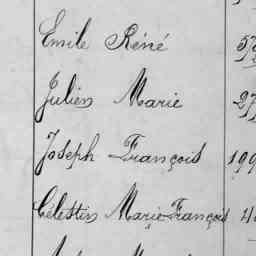 Emile Réné
Julien Marie
Joseph François
Célestin Marie François